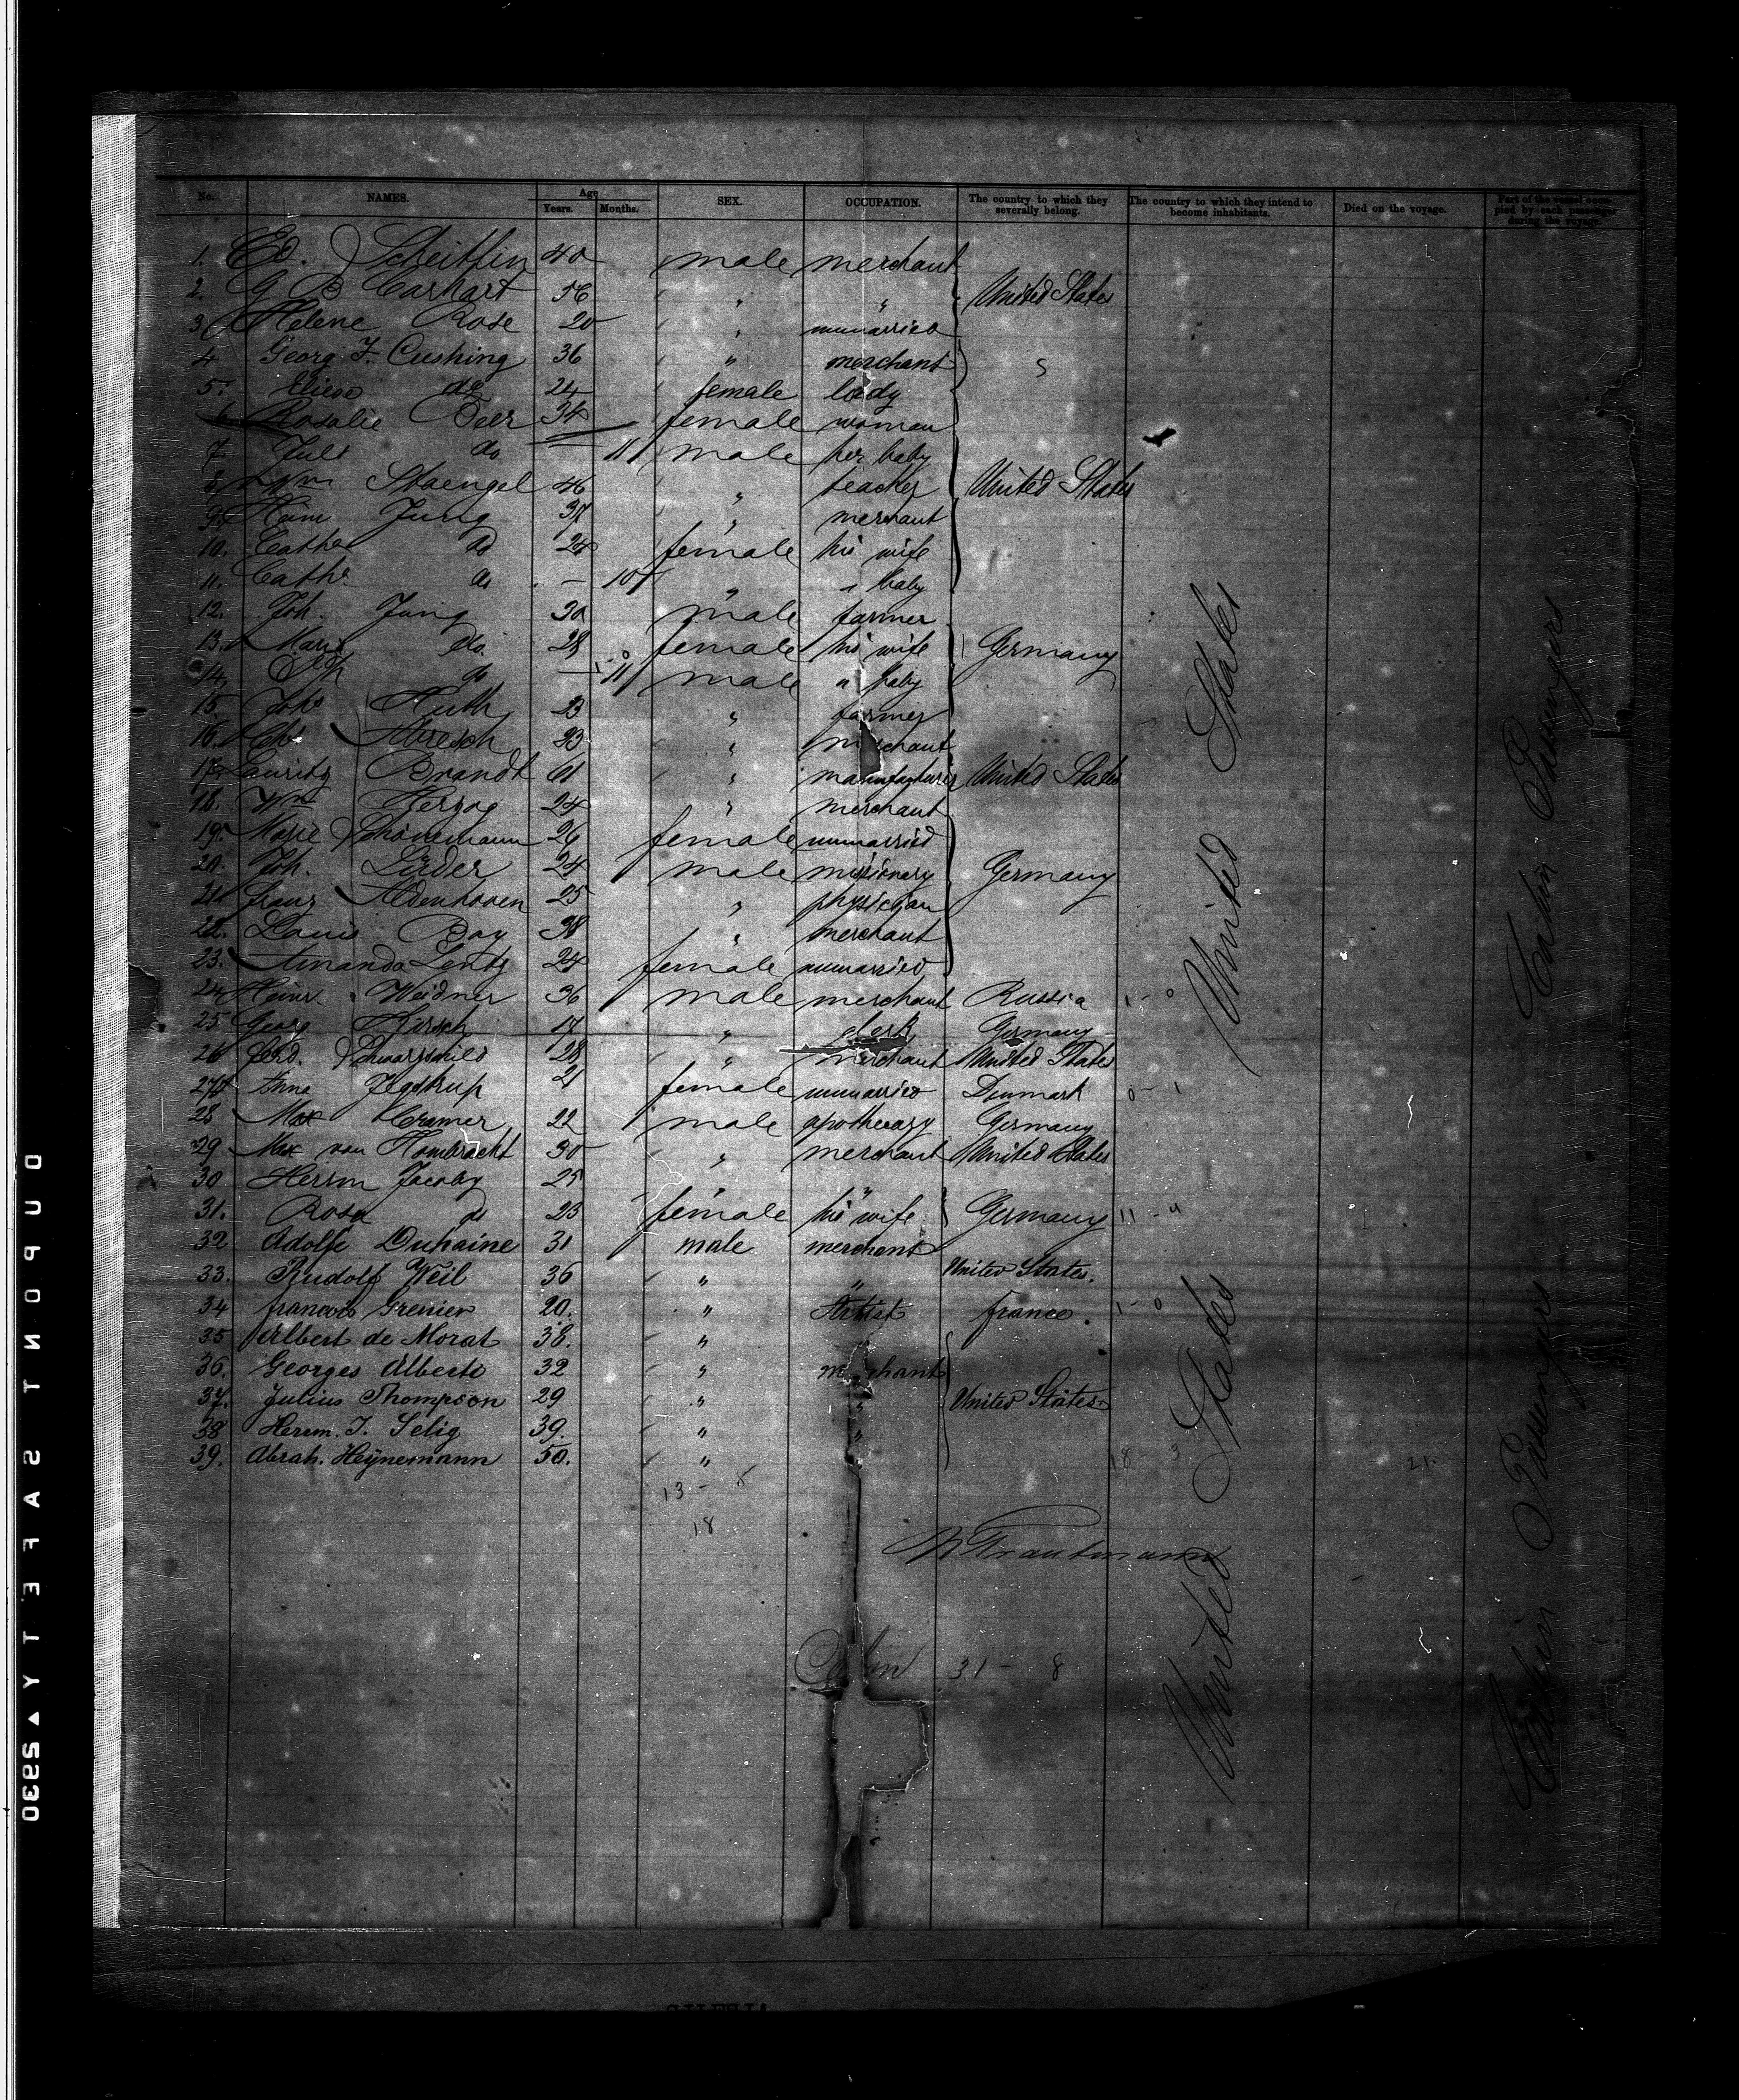 No. NAMES. Age Years. Months. SEX. OCCUPATION. The country to which they severally belong. The country to which they intend to become inhabitants. Died on the voyage. Part of the vessel occupied by each passenger during the voyage.
1. Ed. Scheitlin 40 male merchant
2. G B Carhart 56 " " United States
3 Helene Rose 20 " unmarried
4 Georg F. Cushing 36 " merchant
5. Eliese do 24 female lady
6 Rosalie Beer 34 female woman
7 Jules do — 11 male her baby
8 Wm Staengel 46 " teacher United States
9. Heinr Jung 37 " merchant
10. Cathe do 24 female his wife
11. Cathe do — 10 " " baby
12. Joh. Jung 30 male farmer
13. Marie do 28 female his wife Germany
14. do — 11 male " baby
15. Johs Huth 23 " farmer
16. Hirsch 23 " merchant
17. Lauritz Brandt 61 " manufacturer United States
18. Wm Herzog 24 " merchant
19. Marie Schönemann 26 female unmarried
20. Joh. Lüder 24 male missionary Germany
21 Franz Aldenhoven 25 " physician
22. Louis Bay 38 " merchant
23. Amanda Lentz 24 female unmarried
24 Heinr Weidner 36 male merchant Russia 1 - 0
25 Georg Kirsch 17 " clerk Germany
26 Ferd. Schwarzschild 28 " merchant United States
27 Anna 21 female unmarried Denmark 0 - 1
28 Max Cramer 22 male apothecary Germany
29 Max von Hombracht 30 " merchant United States
30 Herrm Jacoby 25 " "
31. Rosa do 23 female his wife Germany
32 Adolfe Duhaine 31 male merchant
33. Rudolf Weil 36 " " United States.
34 francois Grenier 20. " Artist france. 1 - 0
35 Albert de Morat 38. " "
36. Georges Alberts 32 " merchant
37. Julius Thompson 29 " " United States
38 Herrm. J. Selig 39. " "
39. Abrah. Heynemann 50. " 18 3 21.
13 - 8
18
Trautmann
31 - 8
United States
United States
Cabin Passengers
Cabin Passengers
DUPONT SAFETY 0325